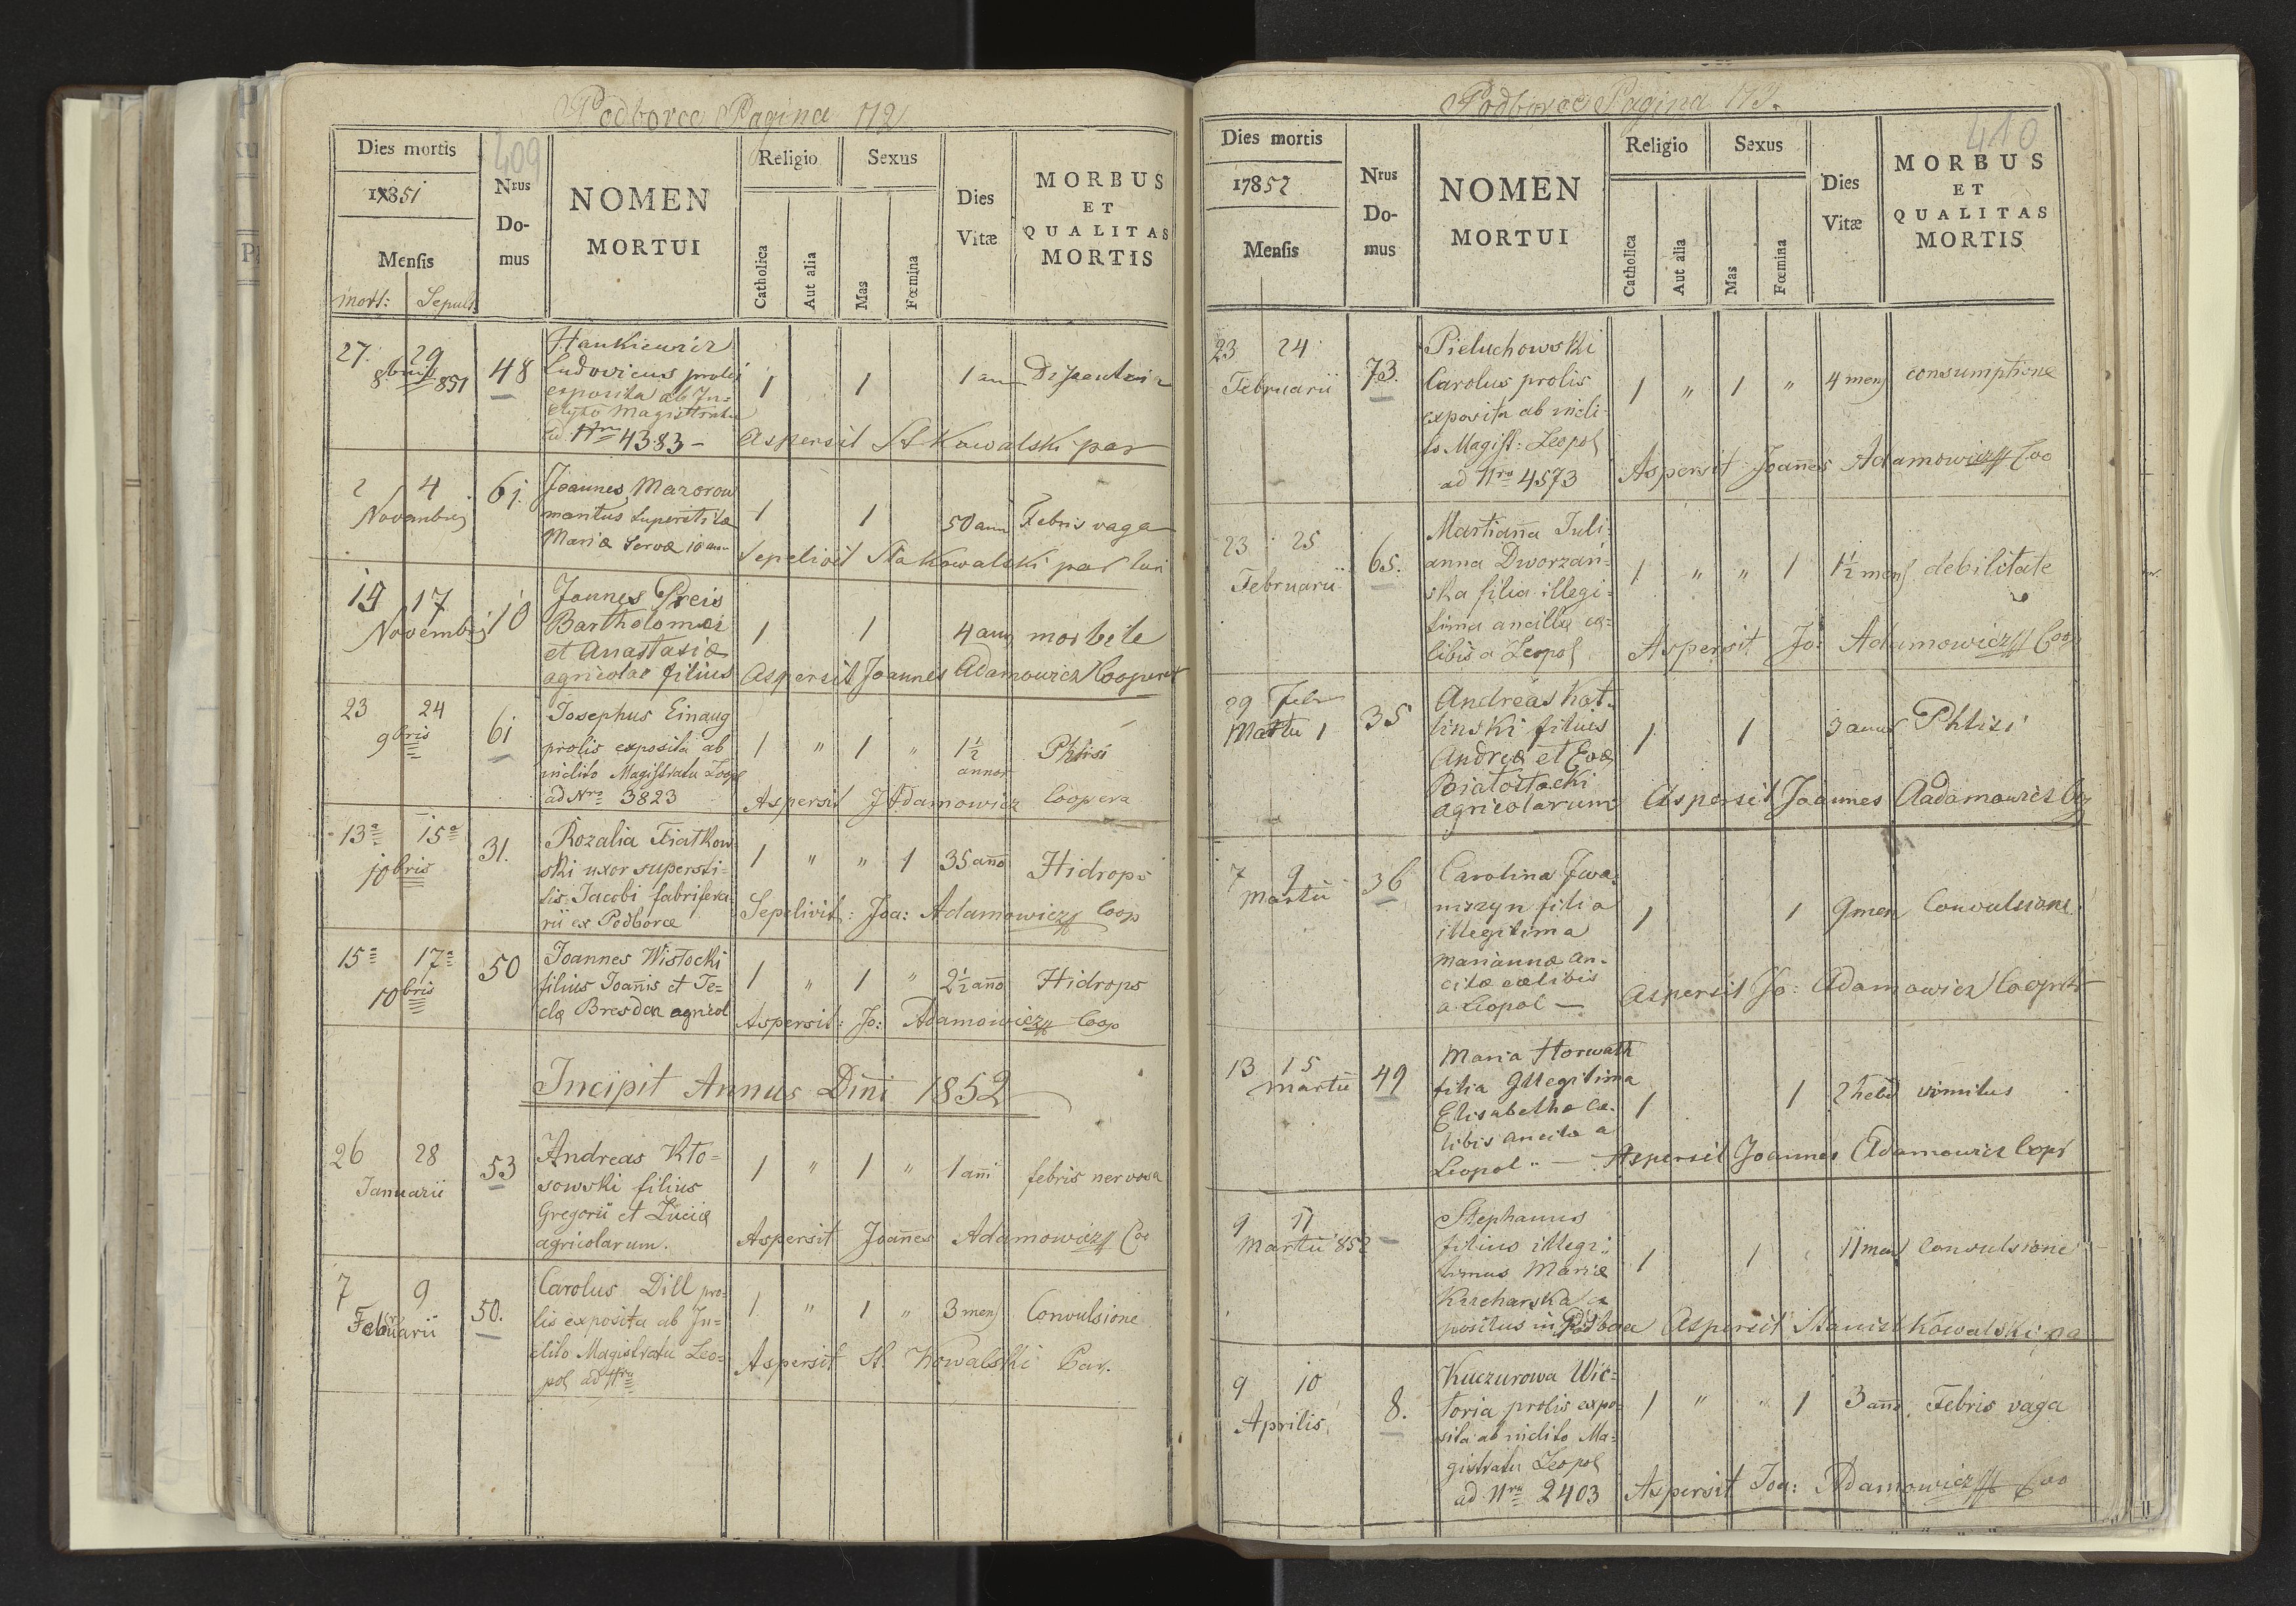 Podborce Pagina 172
409
Dies mortis
1851
Mensis
mort: Sepult:
Nrus Do-mus
NOMEN
MORTUI
Religio
Catholica
Aut alia
Sexus
Mas
Fœmina
Dies
Vitæ
MORBUS
ET
QUALITAS
MORTIS
27. 29
8bris 851
48
Hankiewicz
Ludovicus prolis
exposita ab In=
clyto Magistratu
ad Nrm 4383 –
1 1
1 ann
Aspersit St Kowalski par
2 4
Novembris
61.
Joannes Mazorow
maritus superstitæ
Mariæ Servæ 10 ann
1 1
50 ann
Febris vaga
Sepelivit Sta Kowalski par
19 17
Novembris
10
Joannes Preis
Bartholomæi
et Anastasiæ
agricolae filius
1 1
4 ann
morbile
Aspersit Joannes Adamowicz Cooperat
23 24
9bris
61
Josephus Einaug
prolis exposita ab
inclito Magistratu Leop
ad Nro 3823
1 " 1 "
1½
annor
Phtisi
Aspersit J Adamowicz Coopera
13a 15a
10bris
31.
Rozalia Fiatkow
ski uxor supersti=
tis Jacobi fabri ferra
rii ex Podborce
1 " " 1
35 año
Hidrops
Sepelivit: Joa: Adamowicz Coop
15a 17a
10bris
50
Joannes Wisłocki
filius Joanis et Te=
clæ Bresden agricol
1 " 1 "
2½ año
Hidrops
Aspersit: Jo: Adamowicz Coop
Incipit Annus Dni 1852
26 28
Januarii
53
Andreas Kło=
sowski filius
Gregorii et Luciæ
agricolarum.
1 " 1 "
1 añi
febris nervosa
Aspersit Joañes Adamowicz Coo
7 9
Februarii
50.
Carolus Dill pro=
lis exposita ab In=
clito Magistratu Leo=
pol ad Nro
1 " 1 "
3 mens
Convulsione
Aspersit St. Kowalski Par.
Podborce Pagina 173.
410
Dies mortis
17852
Mensis
Nrus Do-mus
NOMEN
MORTUI
Religio
Catholica
Aut alia
Sexus
Mas
Fœmina
Dies
Vitæ
MORBUS
ET
QUALITAS
MORTIS
23 24
Februarii
73.
Pieluchowski
Carolus prolis
exposita ab incli
to Magist: Leopol
ad Nro 4573
1 " 1 "
4 mens
consumptione
Aspersit Joañes Adamowicz Coo
23 25
Februarii
65.
Martiaña Juli=
anna Dworzań=
ska filia illegi=
tima ancillæ cæ=
libis a Leopol
1 " " 1
1½ mens
debilitate
Aspersit Jo: Adamowicz Coop
29 Febr
Martii 1
35
Andreas Kot=
linski filius
Andreæ et Evæ
Białostocki
agricolarum
1 1
3 annor
Phtisi
Aspersit Joannes Aadamowicz
7 9
Martii
36
Carolina Iwa=
niszyn filia
illegitima
Mariannæ an=
cilæ cælibis
a Leopol –
1 1
9 men
Convulsione
Aspersit Jo: Adamowicz Cooprtr
13 15
Martii
49
Maria Horwath
filia Illegitima
Elisabethæ cæ=
libis ancilæ a
Leopol " –
1 1
2 hebd
Aspersit Joannes Adamowicz Copr
9 11
Martii 852
Stephanus
filius illegi=
timus Mariæ
Kucharska ex
positus in Podborce
1 1
11 mens
Convulsione
Aspersit Stanisl Kowalski pa
9 10
Aprilis
8.
Kuczurowa Wic=
toria prolis expo=
sita ab inclito Ma=
gistratu Leopol
ad Nro 2403
1 " " 1
3 añs
Febris vaga
Aspersit Joa: Adamowicz Coo